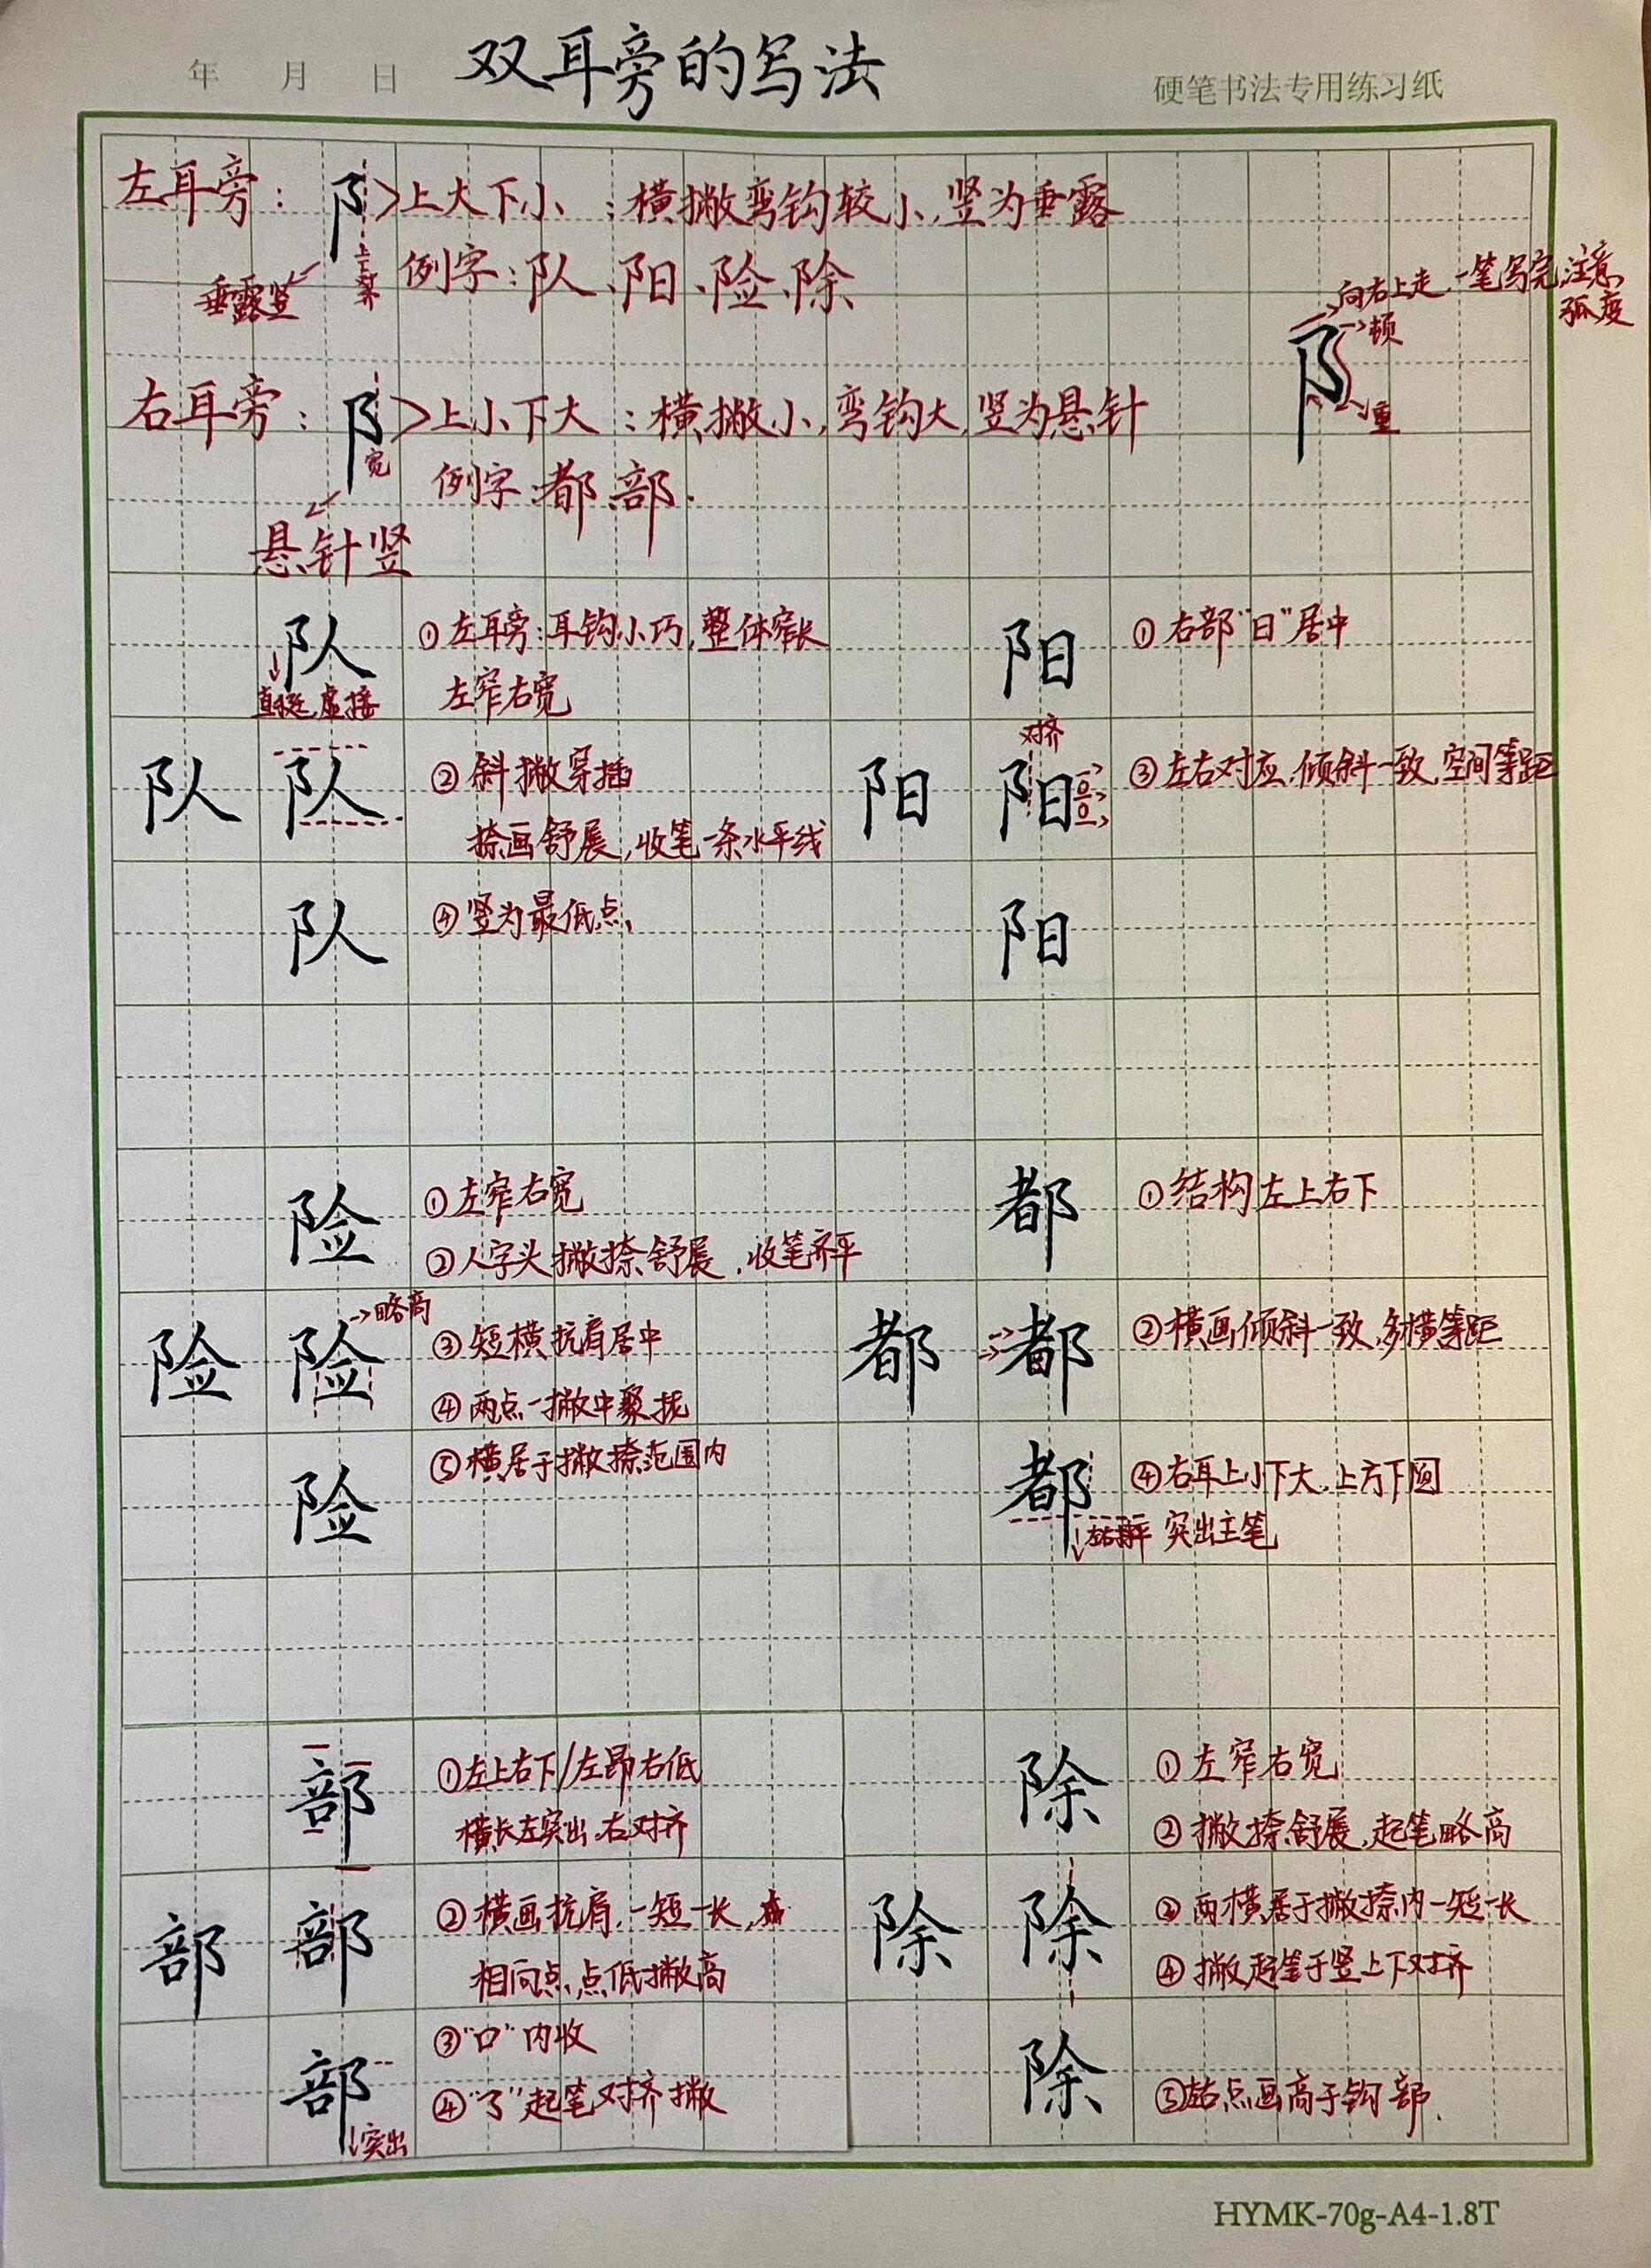 年 月 日 双耳旁的写法 硬笔书法专用练习纸
左耳旁：阝>上大下小：横撇弯钩较小，竖为垂露
垂露竖
例字：队、阳、险、除
向右上走，一笔写完，注意弧度
顿
重
阝
右耳旁：阝>上小下大：横撇小，弯钩大，竖为悬针
宽
例字：都、部.
悬针竖
队
直挺，虚接
①左耳旁：耳钩小巧，整体窄长
左窄右宽
队 队
②斜撇穿插
捺画舒展，收笔一条水平线
队
④竖为最低点，
阳
①右部“日”居中
对齐
阳 阳
③左右对应，倾斜一致，空间等距
阳
险
①左窄右宽
②人字头撇捺舒展，收笔齐平
险 险
→略高
③短横抗肩居中
④两点一撇中聚拢
险
⑤横居于撇捺范围内
都
①结构左上右下
都 都
②横画倾斜一致，多横等距
都
④右耳上小下大，上方下圆
突出主笔
部
①左上右下/左昂右低
横长左突出，右对齐
部 部
②横画抗肩，一短一长，
相向点，点低撇高
部
③“口”内收
④“了”起笔对齐撇
突出
除
①左窄右宽
②撇捺舒展，起笔略高
除 除
③两横居于撇捺内一短一长
④撇起笔于竖上下对齐
除
⑤左右点画高于钩部.
HYMK-70g-A4-1.8T